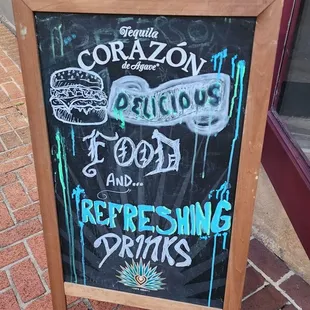 Tequila
CORAZÓN
de Agave
DELICIOUS
FOOD
AND...
REFRESHING
DRINKS